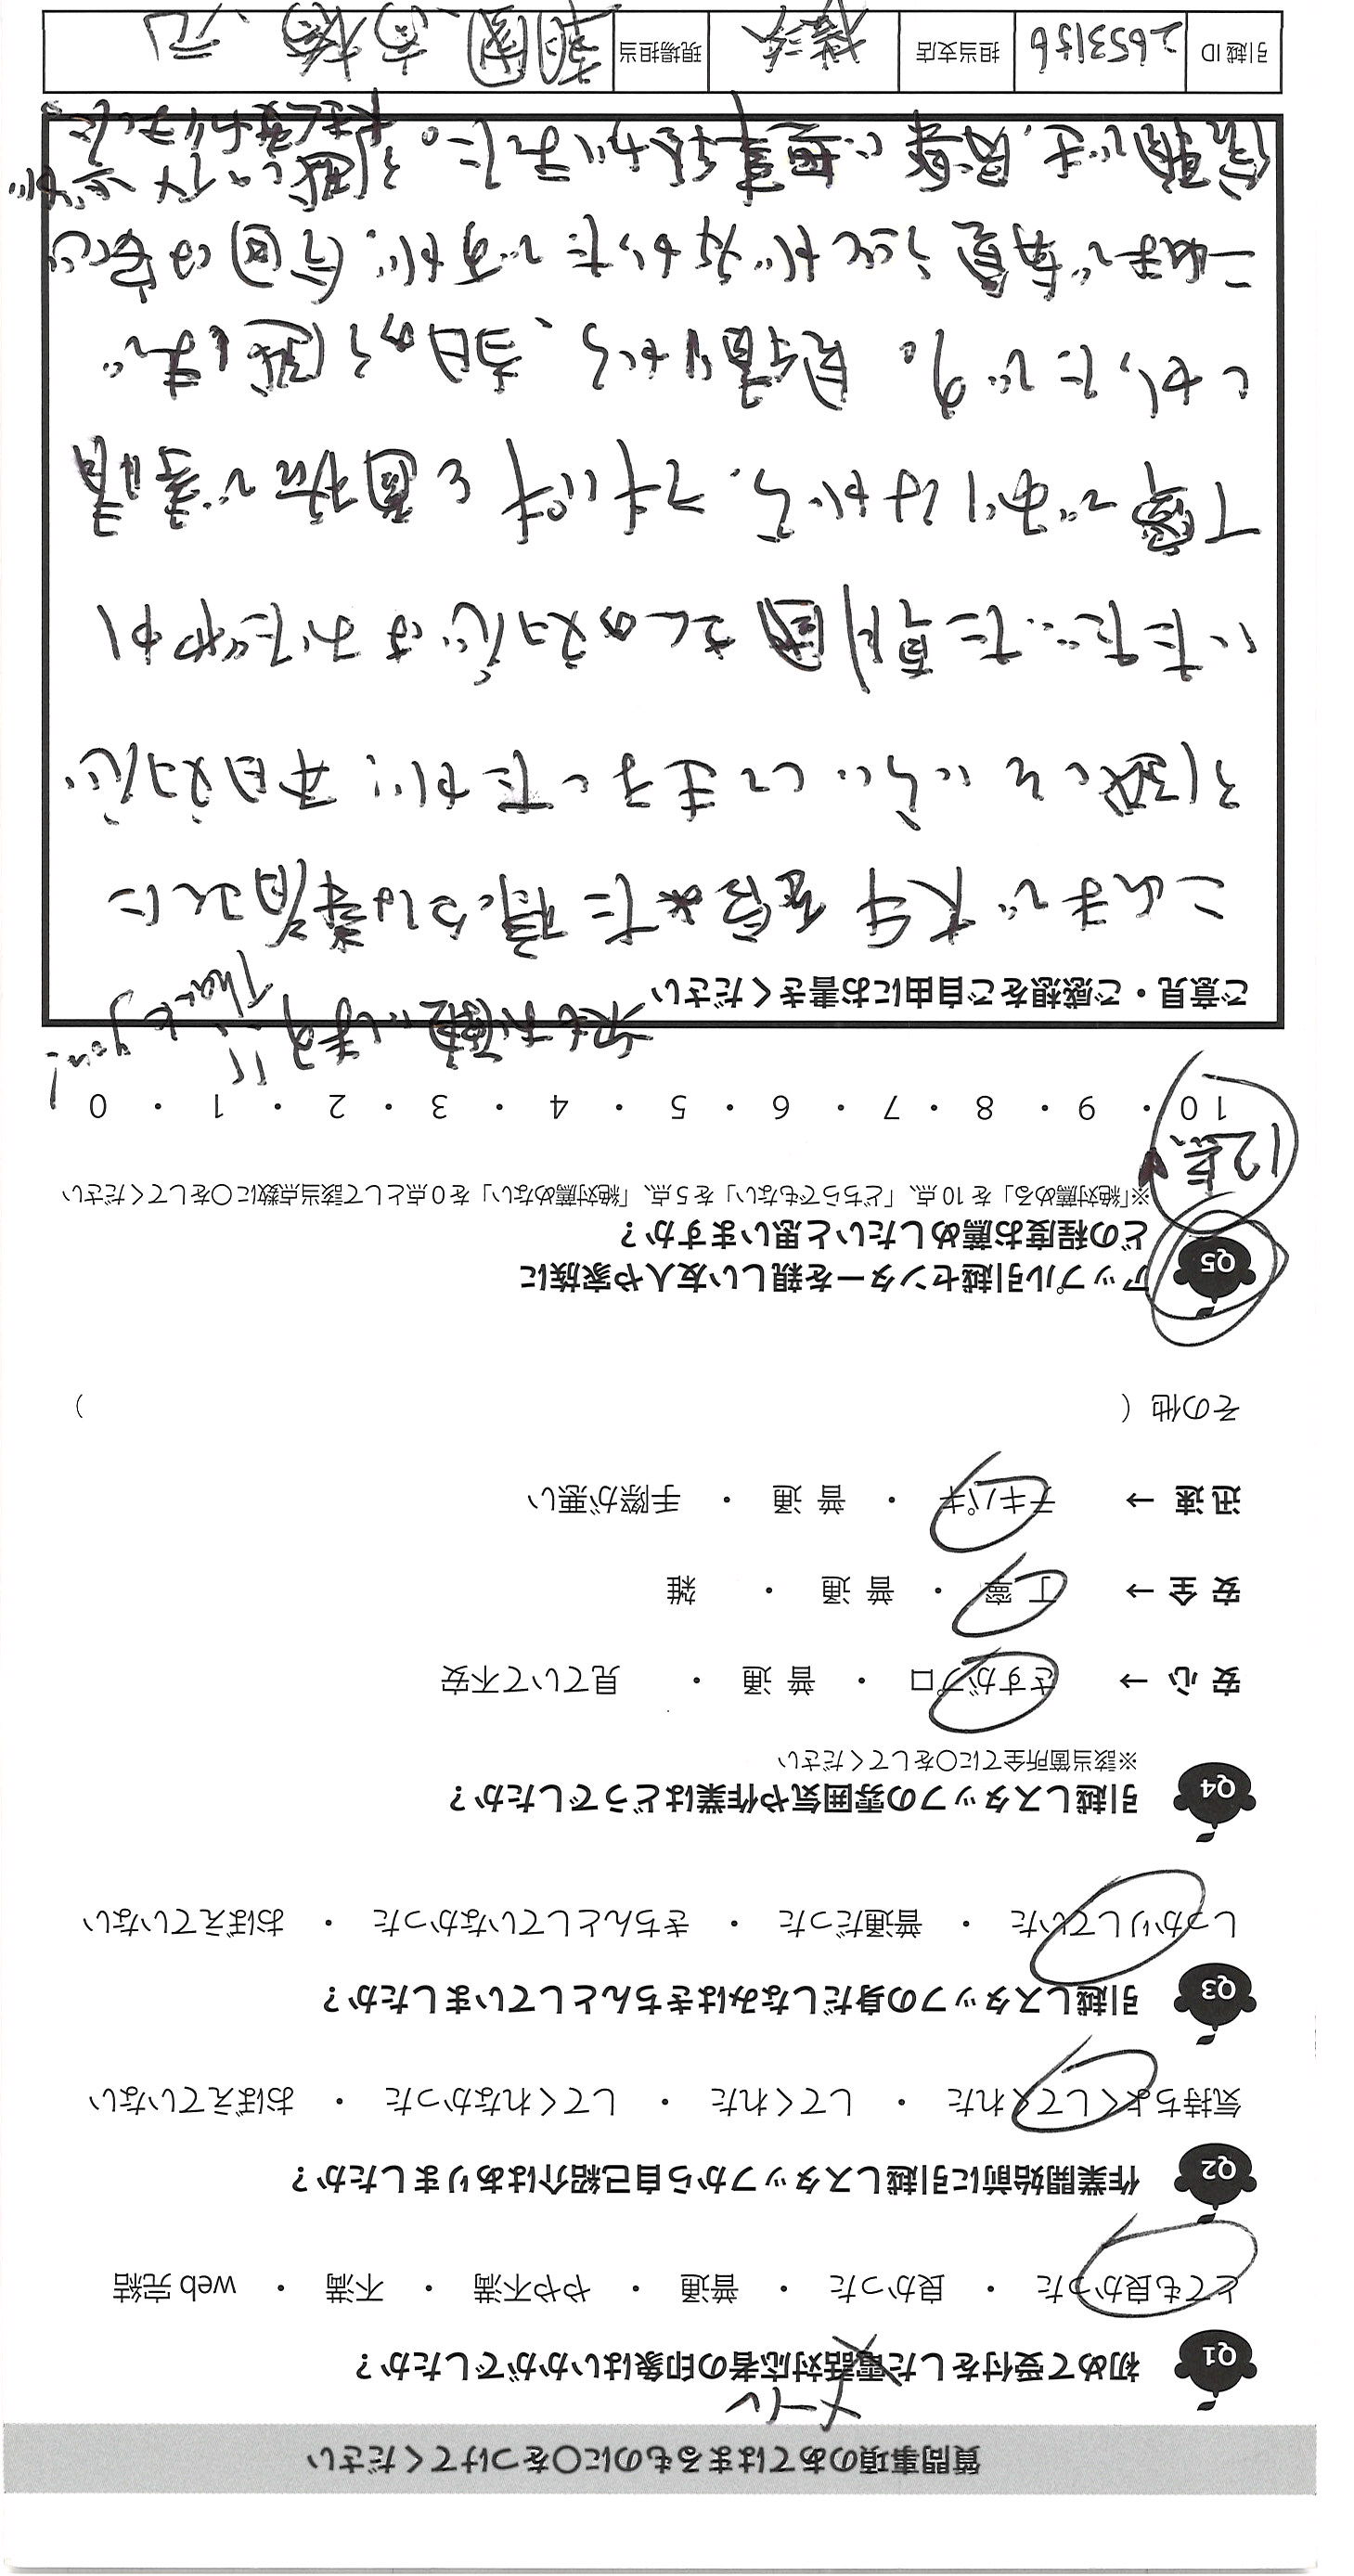 質問事項のあてはまるものに○をつけてください
メール
Q1 初めて受付をした電話対応者の印象はいかがでしたか？
とても良かった ・ 良かった ・ 普通 ・ やや不満 ・ 不満 ・ web 完結
Q2 作業開始前に引越しスタッフから自己紹介はありましたか？
気持ちよくしてくれた ・ してくれた ・ してくれなかった ・ おぼえていない
Q3 引越しスタッフの身だしなみはきちんとしていましたか？
しっかりしていた ・ 普通だった ・ きちんとしていなかった ・ おぼえていない
Q4 引越しスタッフの雰囲気や作業はどうでしたか？
※該当箇所全てに○をしてください
安 心 → さすがプロ ・ 普 通 ・ 見ていて不安
安 全 → 丁 寧 ・ 普 通 ・ 雑
迅 速 → テキパキ ・ 普 通 ・ 手際が悪い
その他（ ）
Q5 アップル引越センターを親しい友人や家族に
どの程度お薦めしたいと思いますか？
※「絶対薦める」を 10 点、「どちらでもない」を 5 点、「絶対薦めない」を 0 点として該当点数に○をしてください
12点
10 ・ 9 ・ 8 ・ 7 ・ 6 ・ 5 ・ 4 ・ 3 ・ 2 ・ 1 ・ 0
次もお願いします!! Thank you!
ご意見・ご感想をご自由にお書きください
これまで大手を含めた様々な業者さんに
引越しをいらいしてきましたが、本日対応
いただいた 國さんの対応はおだやか
丁寧でありながら、テキパキと円滑で素晴
しかったです。見積りから、当日から感じました。
これまで 嫌な が多かったですが、今回は安心
信頼でき、見事に荷 がました。引越しの が
大 変わりました
引越 ID 2653156 担当支店 横浜 現場担当 國、高橋、